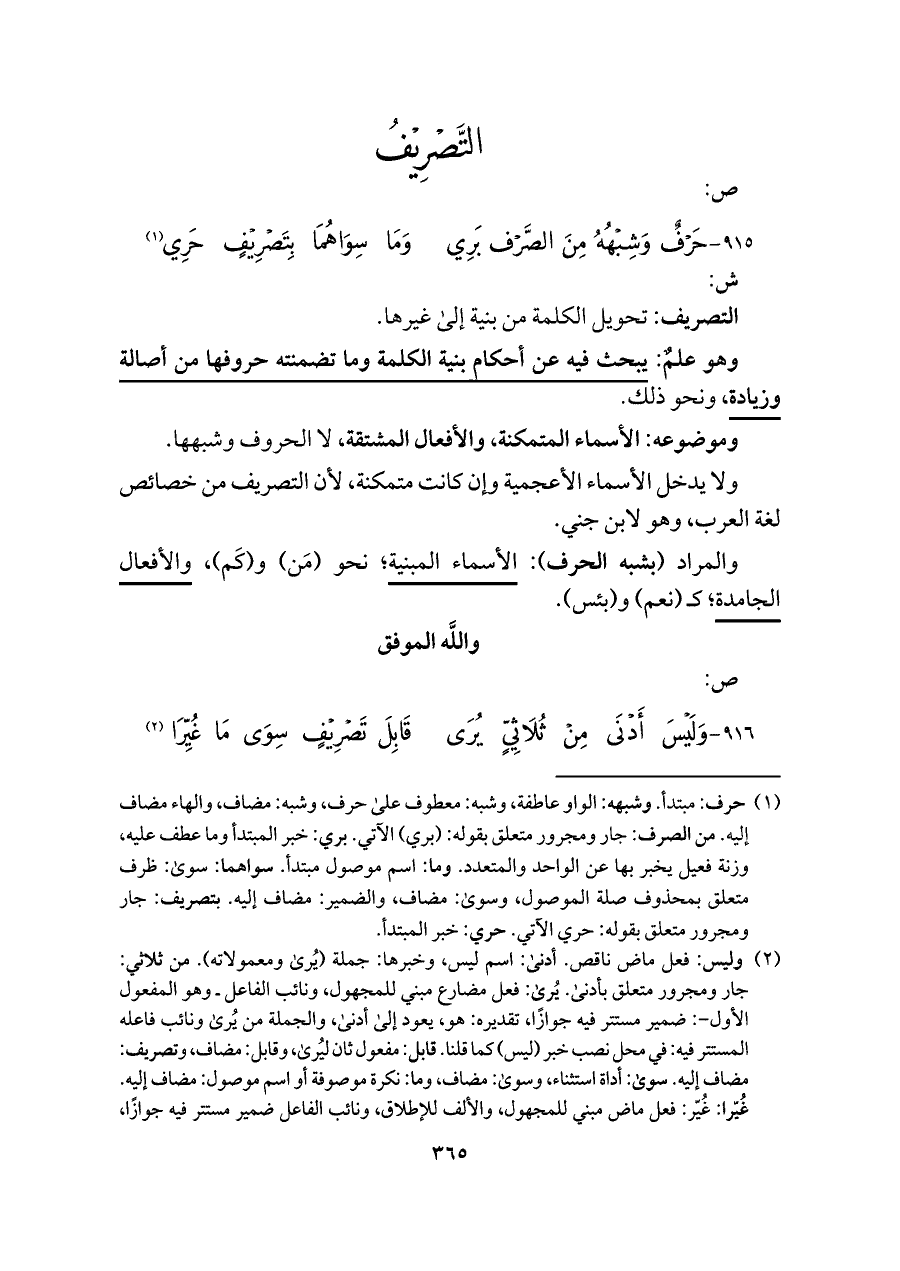 التَّصْرِيْفُ
ص:
٩١٥-حَرْفٌ وَشِبْهُهُ مِنَ الصَّرْف بَرِي وَمَا سِوَاهُمَا بِتَصْرِيْفٍ حَرِي(١)
ش:
التصريف: تحويل الكلمة من بنية إلىٰ غيرها.
وهو علمٌ: يبحث فيه عن أحكام بنية الكلمة وما تضمنته حروفها من أصالة
وزيادة، ونحو ذلك.
وموضوعه: الأسماء المتمكنة، والأفعال المشتقة، لا الحروف وشبهها.
ولا يدخل الأسماء الأعجمية وإن كانت متمكنة، لأن التصريف من خصائص
لغة العرب، وهو لابن جني.
والمراد (بشبه الحرف): الأسماء المبنية؛ نحو (مَن) و(كَم)، والأفعال
الجامدة؛ كـ (نعم) و(بئس).
واللَّه الموفق
ص:
٩١٦-وَلَيْسَ أَدْنَى مِنْ ثُلَاثِيٍّ يُرَى قَابِلَ تَصْرِيْفٍ سِوَى مَا غُيِّرَا (٢)
(١) حرف: مبتدأ. وشبهه: الواو عاطفة، وشبه: معطوف علىٰ حرف، وشبه: مضاف، والهاء مضاف
إليه. من الصرف: جار ومجرور متعلق بقوله: (بري) الآتي. بري: خبر المبتدأ وما عطف عليه،
وزنة فعيل يخبر بها عن الواحد والمتعدد. وما: اسم موصول مبتدأ. سواهما: سوىٰ: ظرف
متعلق بمحذوف صلة الموصول، وسوىٰ: مضاف، والضمير: مضاف إليه. بتصريف: جار
ومجرور متعلق بقوله: حري الآتي. حري: خبر المبتدأ.
(٢) وليس: فعل ماض ناقص. أدنىٰ: اسم ليس، وخبرها: جملة (يُرىٰ ومعمولاته). من ثلاثي:
جار ومجرور متعلق بأدنىٰ. يُرىٰ: فعل مضارع مبني للمجهول، ونائب الفاعل ـ وهو المفعول
الأول–: ضمير مستتر فيه جوازًا، تقديره: هو، يعود إلىٰ أدنىٰ، والجملة من يُرىٰ ونائب فاعله
المستتر فيه: في محل نصب خبر (ليس) كما قلنا. قابل: مفعول ثان ليُرىٰ، وقابل: مضاف، وتصريف:
مضاف إليه. سوىٰ: أداة استثناء، وسوىٰ: مضاف، وما: نكرة موصوفة أو اسم موصول: مضاف إليه.
غُيّرا: غُيّر: فعل ماض مبني للمجهول، والألف للإطلاق، ونائب الفاعل ضمير مستتر فيه جوازًا،
٣٦٥